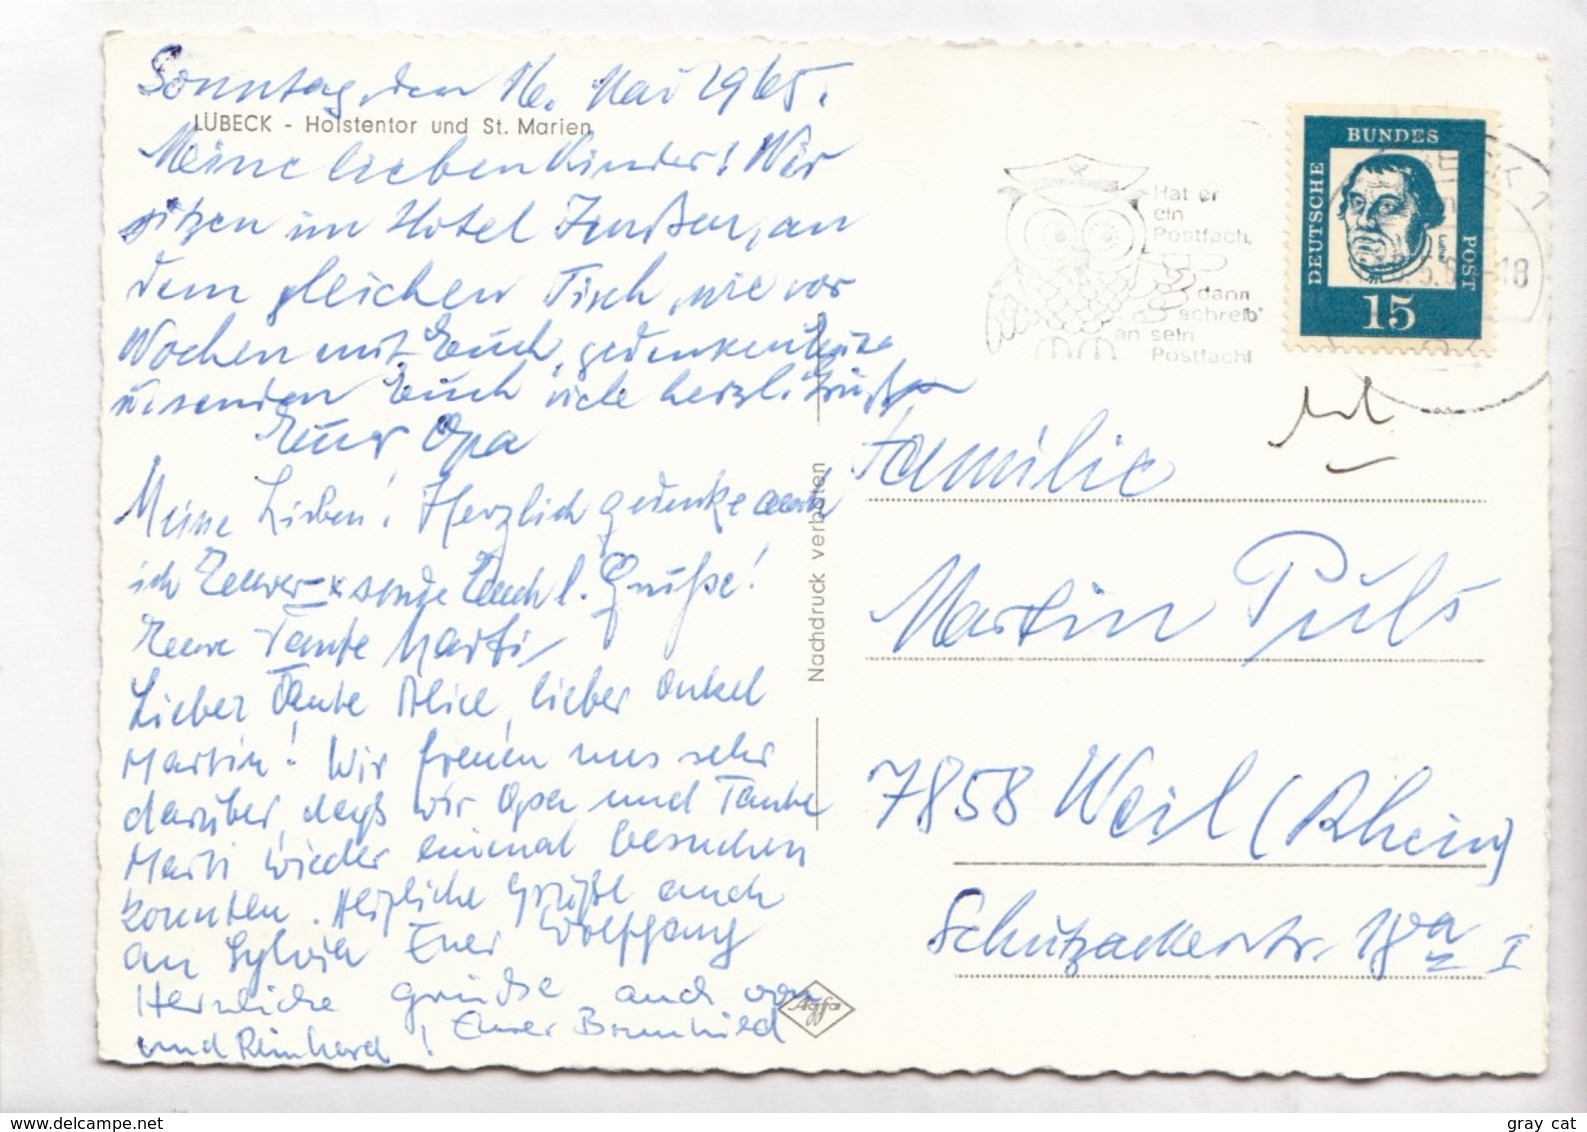 Sonntag, den 16. Mai 1965.
LÜBECK - Holstentor und St. Marien
Meine lieben Kinder! Wir
sitzen im Hotel an
dem gleichen Tisch, wie vor
Wochen mit Euch, gedenken Eurer
u. senden Euch viele herzl. Grüße
Euer Opa
Meine Lieben! Herzlich gedenke auch
ich Eurer u. sende Euch l. Grüße!
Eure Tante Marti
Lieber Tante Alice, lieber Onkel
Martin! Wir freuen uns sehr
darüber, dass wir Opa und Tante
Marti wieder einmal besuchen
konnten. Herzliche Grüße auch
an Sylvia Euer Wolfgang
Herzliche Grüße auch von
und Reinhard! Eurer Brunhild
Nachdruck verboten
Agfa
Hat er
ein
Postfach,
dann
schreib'
an sein
Postfach!
DEUTSCHE
BUNDES
POST
Luther
15
Familie
Martin Puls
7858 Weil (Rhein)
Schützackerstr. 18a I
gray cat